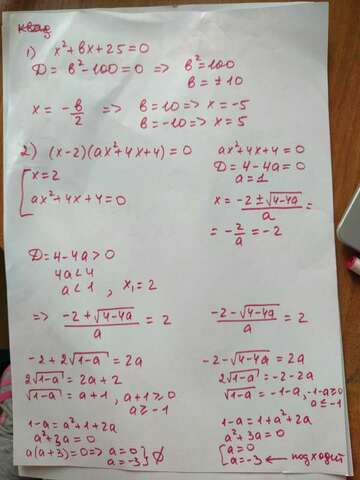 1) x² + bx + 25 = 0
D = b² - 100 = 0 => b² = 100
b = ± 10
x = -b/2 => b = 10 => x = -5
b = -10 => x = 5
2) (x-2)(ax² + 4x + 4) = 0
[ x = 2
ax² + 4x + 4 = 0
ax² + 4x + 4 = 0
D = 4 - 4a = 0
a = 1
x = (-2 ± √(4-4a))/a =
= -2/a = -2
D = 4 - 4a > 0
4a < 4
a < 1 , x₁ = 2
=> (-2 + √(4-4a))/a = 2
-2 + 2√(1-a) = 2a
2√(1-a) = 2a + 2
√(1-a) = a + 1 , a + 1 ≥ 0
a ≥ -1
1 - a = a² + 1 + 2a
a² + 3a = 0
a(a+3) = 0 => a = 0
a = -3 } ∅
(-2 - √(4-4a))/a = 2
-2 - √(4-4a) = 2a
2√(1-a) = -2 - 2a
√(1-a) = -1 - a, -1-a ≥ 0
a ≤ -1
1 - a = 1 + a² + 2a
a² + 3a = 0
[ a = 0
a = -3 ← подходит